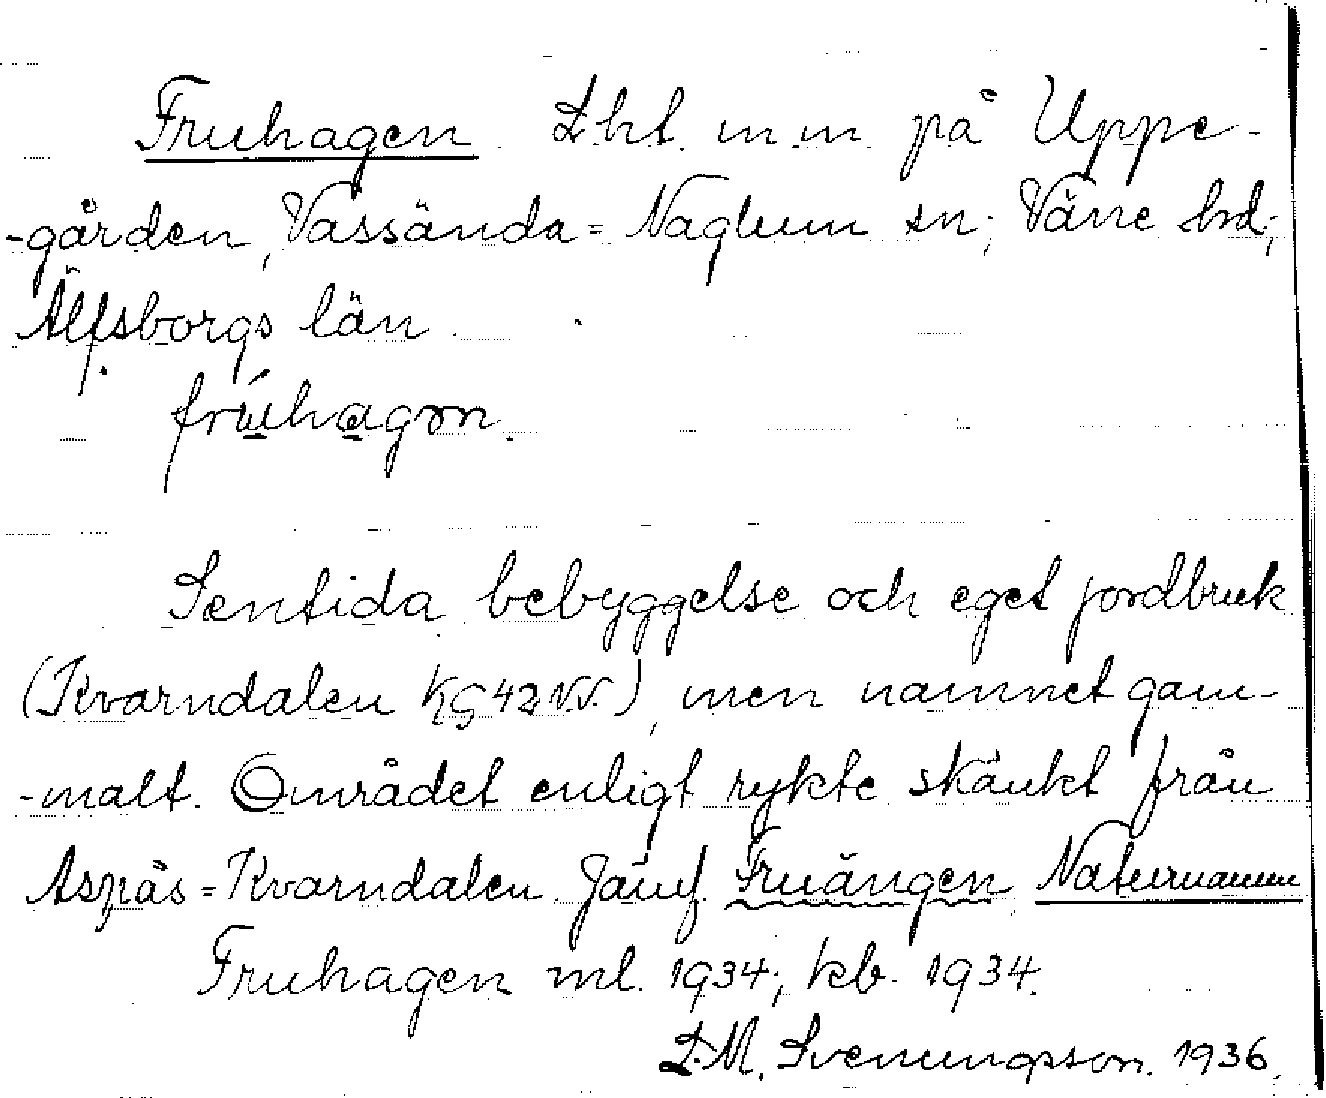 Fruhagen L.h.t. m.m. på Uppe-
-gården, Vassända=Naglum sn; Väne hd;
Älfsborgs län.
frúhagɔn.
Sentida bebyggelse och eget jordbruk
(Kvarndalen), men namnet gam-
-malt. Området enligt rykte skänkt från
Aspäs=Kvarndalen. Jämf. Fruängen Naturnamn
Fruhagen ml. 1934; kb. 1934.
L.M. Svenungsson. 1936.